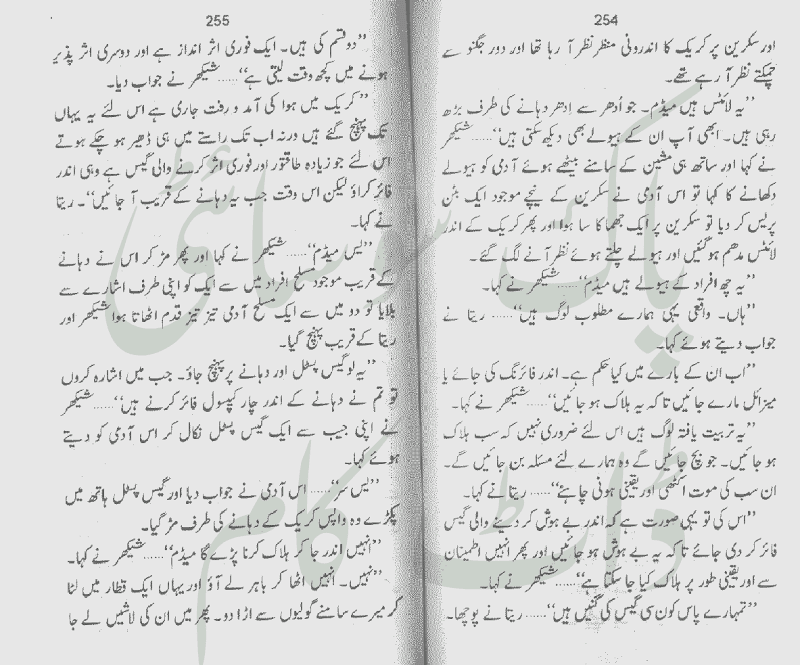 254
اور سکرین پر کریک کا اندرونی منظر نظر آ رہا تھا اور دور جگنو سے
چمکتے نظر آ رہے تھے۔
’’یہ لائٹس ہیں میڈم۔ جو اُدھر سے اِدھر دہانے کی طرف بڑھ
رہی ہیں۔ ابھی آپ ان کے ہیولے بھی دیکھ سکتی ہیں‘‘...... شیکھر
نے کہا اور ساتھ ہی مشین کے سامنے بیٹھے ہوئے آدمی کو ہیولے
دکھانے کا کہا تو اس آدمی نے سکرین کے نیچے موجود ایک بٹن
پریس کر دیا تو سکرین پر ایک جھماکا سا ہوا اور پھر کریک کے اندر
لائٹس مدھم ہو گئیں اور ہیولے چلتے ہوئے نظر آنے لگ گئے۔
’’یہ چھ افراد کے ہیولے ہیں میڈم‘‘...... شیکھر نے کہا۔
’’ہاں۔ واقعی یہی ہمارے مطلوب لوگ ہیں‘‘...... ریتا نے
جواب دیتے ہوئے کہا۔
’’اب ان کے بارے میں کیا حکم ہے۔ اندر فائرنگ کی جائے یا
میزائل مارے جائیں تاکہ یہ ہلاک ہو جائیں‘‘...... شیکھر نے کہا۔
’’یہ تربیت یافتہ لوگ ہیں اس لئے ضروری نہیں کہ سب ہلاک
ہو جائیں۔ جو بچ جائیں گے وہ ہمارے لئے مسئلہ بن جائیں گے۔
ان سب کی موت اکٹھی اور یقینی ہونی چاہئے‘‘...... ریتا نے کہا۔
’’اس کی تو یہی صورت ہے کہ اندر بے ہوش کر دینے والی گیس
فائر کر دی جائے تاکہ یہ بے ہوش ہو جائیں اور پھر انہیں اطمینان
سے اور یقینی طور پر ہلاک کیا جا سکتا ہے‘‘...... شیکھر نے کہا۔
’’تمہارے پاس کون سی گیس کی گنیں ہیں‘‘...... ریتا نے پوچھا۔
255
’’دو قسم کی ہیں۔ ایک فوری اثر انداز ہے اور دوسری اثر پذیر
ہونے میں کچھ وقت لیتی ہے‘‘...... شیکھر نے جواب دیا۔
’’کریک میں ہوا کی آمد و رفت جاری ہے اس لئے یہ یہاں
تک پہنچ گئے ہیں ورنہ اب تک راستے میں ہی ڈھیر ہو چکے ہوتے
اس لئے جو زیادہ طاقتور اور فوری اثر کرنے والی گیس ہے وہی اندر
فائر کراؤ لیکن اس وقت جب یہ دہانے کے قریب آ جائیں‘‘۔ ریتا
نے کہا۔
’’یس میڈم‘‘...... شیکھر نے کہا اور پھر مڑ کر اس نے دہانے
کے قریب موجود مسلح افراد میں سے ایک کو اپنی طرف اشارے سے
بلایا تو دو میں سے ایک مسلح آدمی تیز تیز قدم اٹھاتا ہوا شیکھر اور
ریتا کے قریب پہنچ گیا۔
’’یہ لو گیس پسٹل اور دہانے پر پہنچ جاؤ۔ جب میں اشارہ کروں
تو تم نے دہانے کے اندر چار کیپسول فائر کرنے ہیں‘‘...... شیکھر
نے اپنی جیب سے ایک گیس پسٹل نکال کر اس آدمی کو دیتے
ہوئے کہا۔
’’یس سر‘‘...... اس آدمی نے جواب دیا اور گیس پسٹل ہاتھ میں
پکڑے وہ واپس کریک کے دہانے کی طرف مڑ گیا۔
’’انہیں اندر جا کر ہلاک کرنا پڑے گا میڈم‘‘...... شیکھر نے کہا۔
’’نہیں۔ انہیں اٹھا کر باہر لے آؤ اور یہاں ایک قطار میں لٹا
کر میرے سامنے گولیوں سے اڑا دو۔ پھر میں ان کی لاشیں لے جا
پاک سوسائٹی
ڈاٹ کام